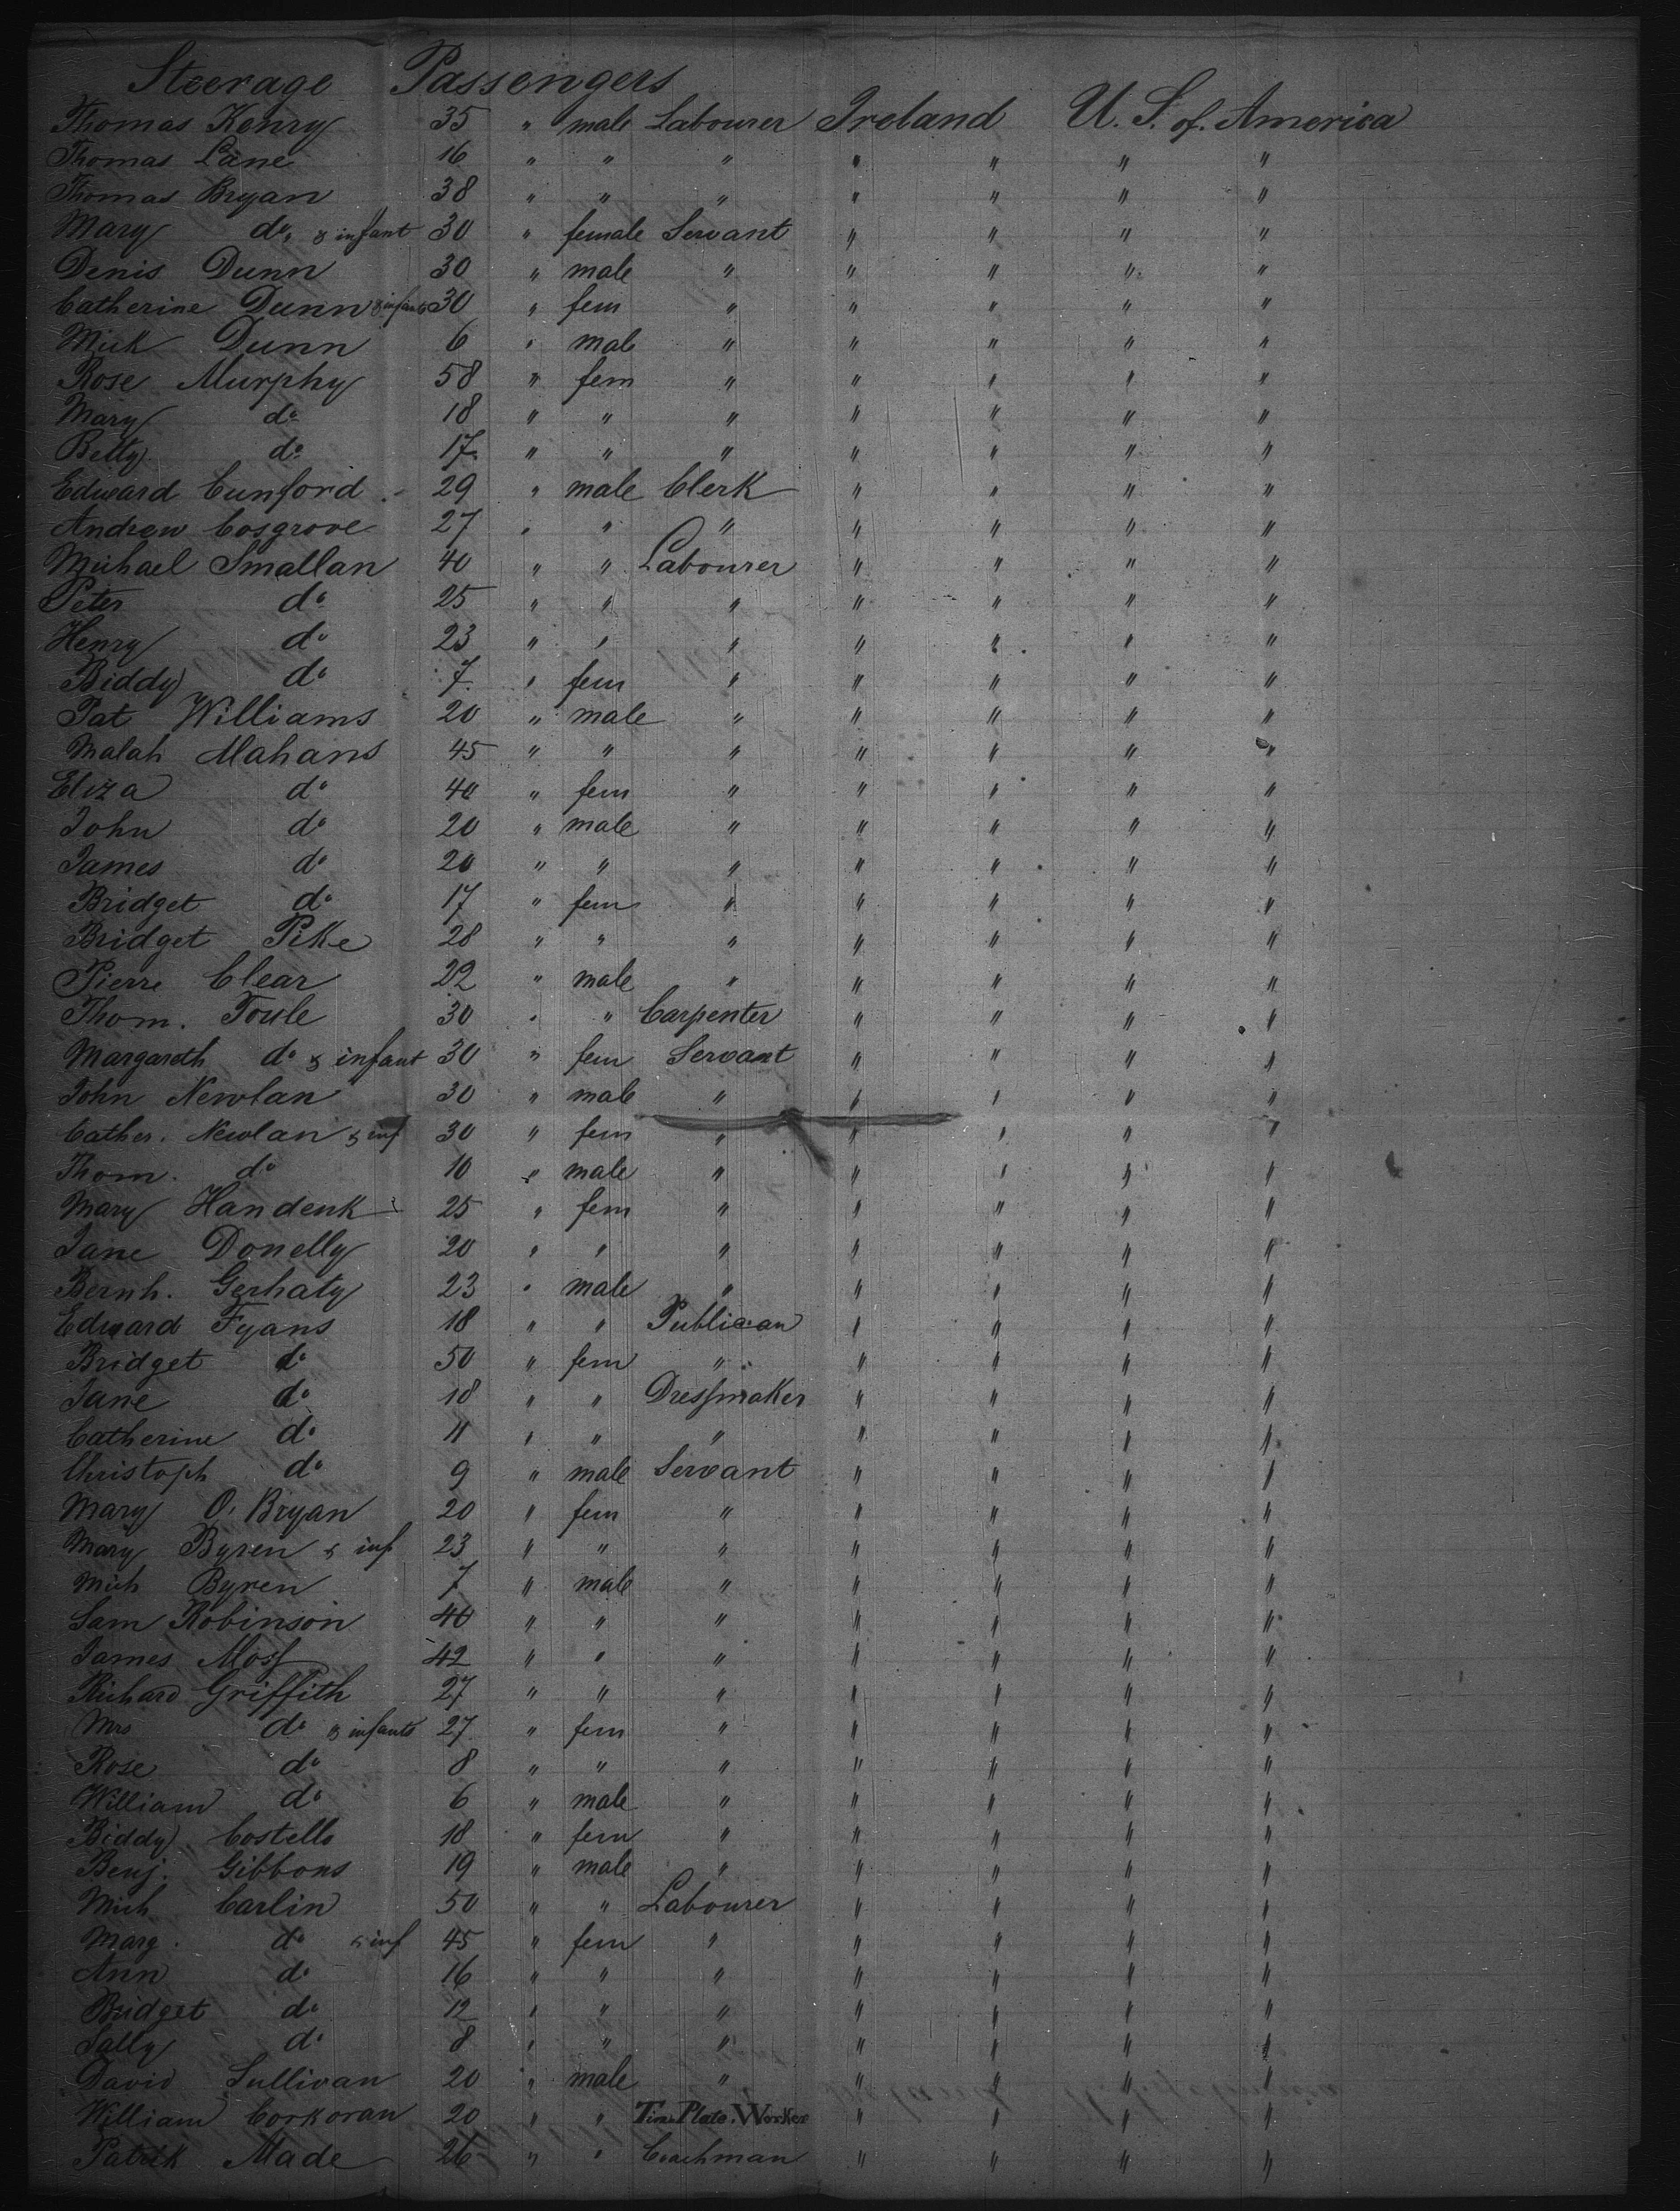 Steerage Passengers
Thomas Kenry 35 " male Labourer Ireland U. S. of America
Thomas Lane 16 " " " " " " "
Thomas Bryan 38 " " " " " " "
Mary do, & infant 30 " female Servant " " " "
Denis Dunn 30 " male " " " " "
Catherine Dunn & infants 30 " fem " " " " "
Mick Dunn 6 " male " " " " "
Rose Murphy 58 " fem " " " " "
Mary do 18 " " " " " " "
Betty do 17 " " " " " " "
Edward Cunford 29 " male Clerk " " " "
Andrew Cosgrove 27 " " " " " " "
Michael Smallan 40 " " Labourer " " " "
Peter do 25 " " " " " " "
Henry do 23 " " " " " " "
Biddy do 7 " fem " " " " "
Pat Williams 20 " male " " " " "
Malah Mahans 45 " " " " " " "
Eliza do 40 " fem " " " " "
John do 20 " male " " " " "
James do 20 " " " " " " "
Bridget do 17 " fem " " " " "
Bridget Pike 28 " " " " " " "
Pierre Clear 22 " male " " " " "
Thom. Toule 30 " " Carpenter " " " "
Margareth do & infant 30 " fem Servant " " " "
John Newlan 30 " male " " " " "
Cather. Newlan & inf 30 " fem " " " " "
Thom. do 10 " male " " " " "
Mary Handenk 25 " fem " " " " "
Jane Donelly 20 " " " " " " "
Bernh. Gerhaty 23 " male " " " " "
Edward Fyans 18 " " Publican " " " "
Bridget do 50 " fem " " " " "
Jane do 18 " " Dressmaker " " " "
Catherine do 11 " " " " " " "
Christoph do 9 " male Servant " " " "
Mary O. Bryan 20 " fem " " " " "
Mary Byren & inf 23 " " " " " " "
Mich Byren 7 " male " " " " "
Sam Robinson 40 " " " " " " "
James Moss 42 " " " " " " "
Richard Griffith 27 " " " " " " "
Mrs do & infants 27 " fem " " " " "
Rose do 8 " " " " " " "
William do 6 " male " " " " "
Biddy Costello 18 " fem " " " " "
Benj. Gibbons 19 " male " " " " "
Mich Carlin 50 " " Labourer " " " "
Marg. do & inf 45 " fem " " " " "
Ann do 16 " " " " " " "
Bridget do 12 " " " " " " "
Sally do 8 " " " " " " "
David Sullivan 20 " male " " " " "
William Corkoran 20 " " Tin. Plate. Worker " " " "
Patrik Made 26 " " Coachman " " " "